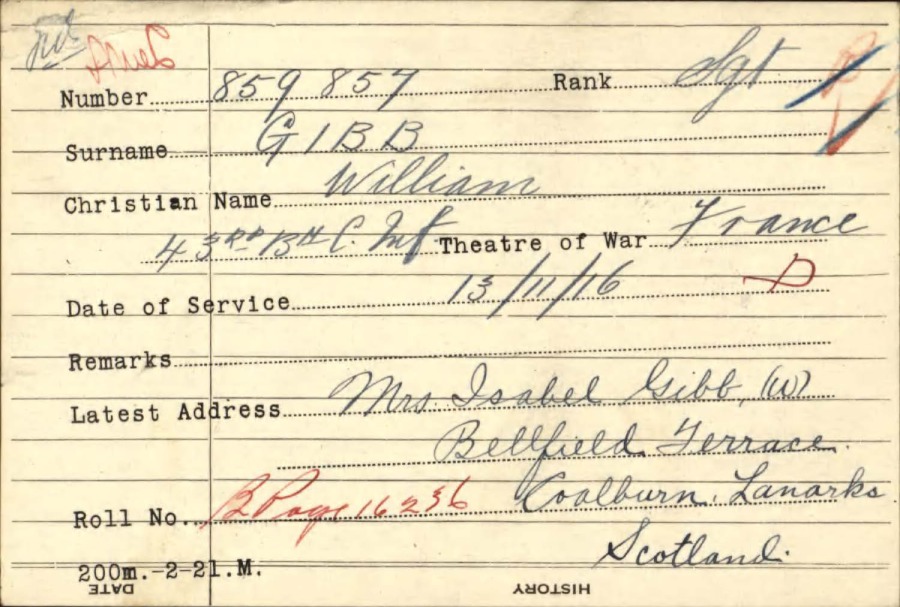 Number 859 857 Rank Sgt
Surname GIBB
Christian Name William
43RD BN C. Inf Theatre of War France
Date of Service 13/11/16 D
Remarks
Latest Address Mrs. Isabel Gibb, (W)
Bellfield Terrace.
Roll No. B Page 16236 Coalburn. Lanarks
Scotland.
200m.-2-21.M.
DATE HISTORY